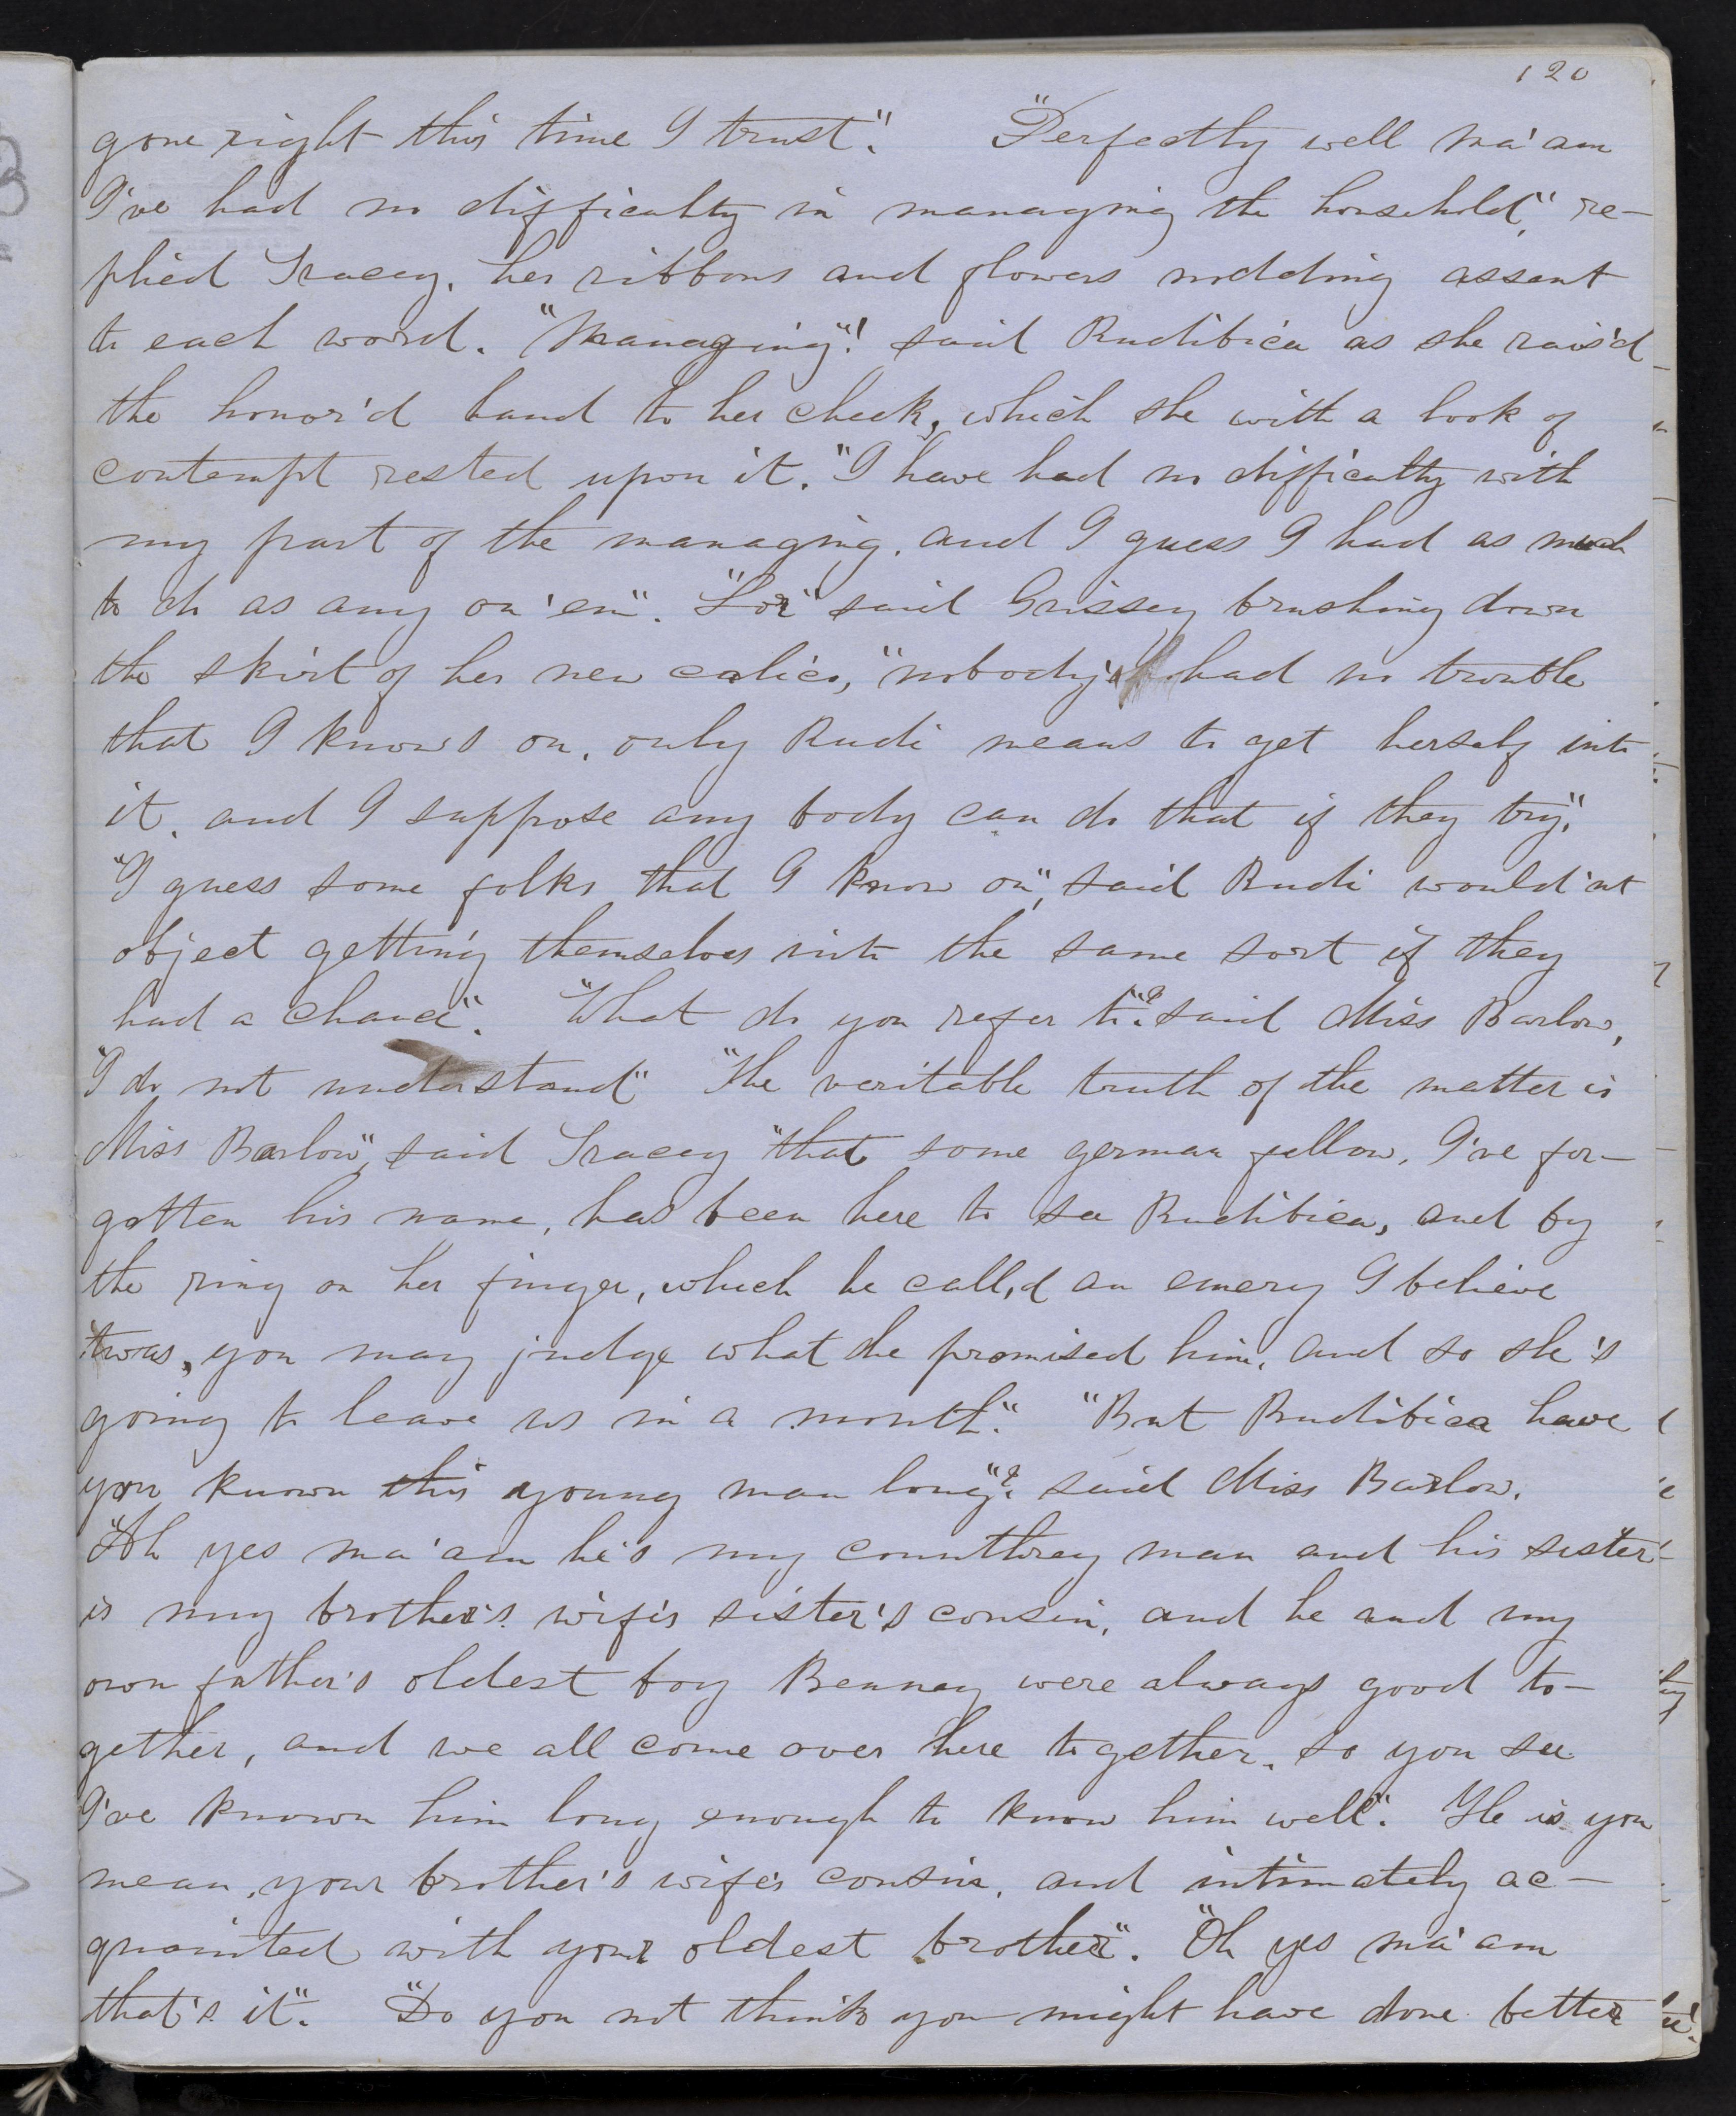 120
gone right this time I trust". "Perfectly well ma'am
I've had no difficulty in managing the household," re-
plied Tracey, her ribbons and flowers nodding assent
to each word. "Managing"! said Rudibica as she rais'd
the honor'd hand to her cheek, which she with a look of
contempt rested upon it. "I have had no difficulty with
my part of the managing, and I guess I had as much
to do as any on 'em". "Lor" said Grissey brushing down
the skirt of her new calico, "nobody's had no trouble
that I knows on, only Rudi means to get herself into
it, and I suppose any body can do that if they try."
"I guess some folks that I know on", said Rudi would'nt
object getting themselves into the same sort if they
had a chance". "What do you refer to"? said Miss Barlow,
"I do not understand" "The veritable truth of the matter is
Miss Barlow", said Tracey "that some german fellow, I've for-
gotten his name, has been here to see Rudibica, and by
the ring on her finger, which he call,d an emery I believe
twas, you may judge what she promised him, and so she's
going to leave us in a month". "But Rudibica have
you known this young man long"? said Miss Barlow.
"Oh yes ma'am he's my counthrey man and his sister
is my brother's wife's sister's cousin, and he and my
own father's oldest boy Benney were always good to-
gether, and we all come over here together. So you see
I've known him long enough to know him well". He is you
mean, your brother's wife's cousin, and intimately ac-
quainted with your oldest brother". "Oh yes ma'am
that's it". "Do you not think you might have done better